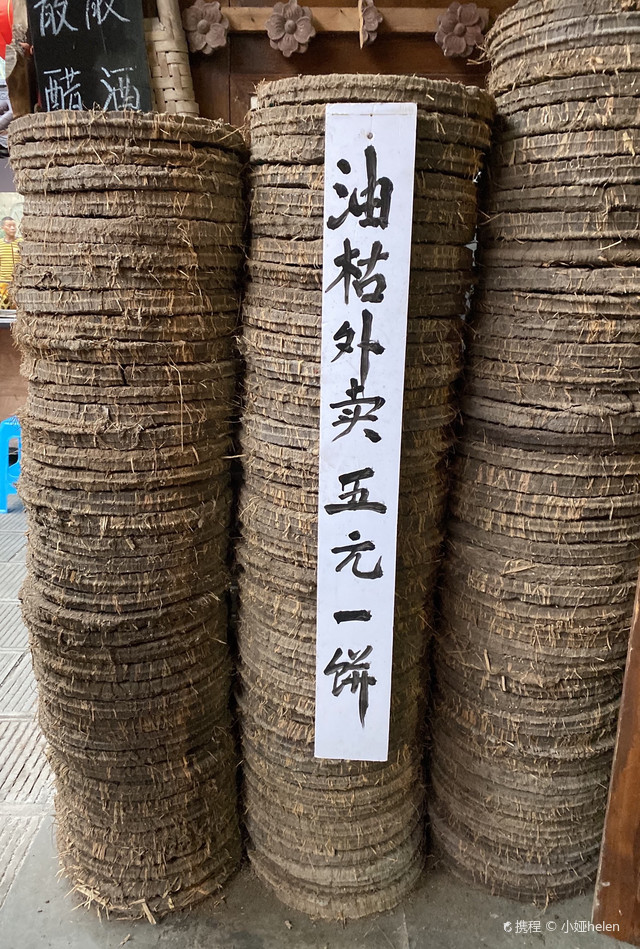 醋酒
油枯外卖 五元一饼
携程 © 小娅helen